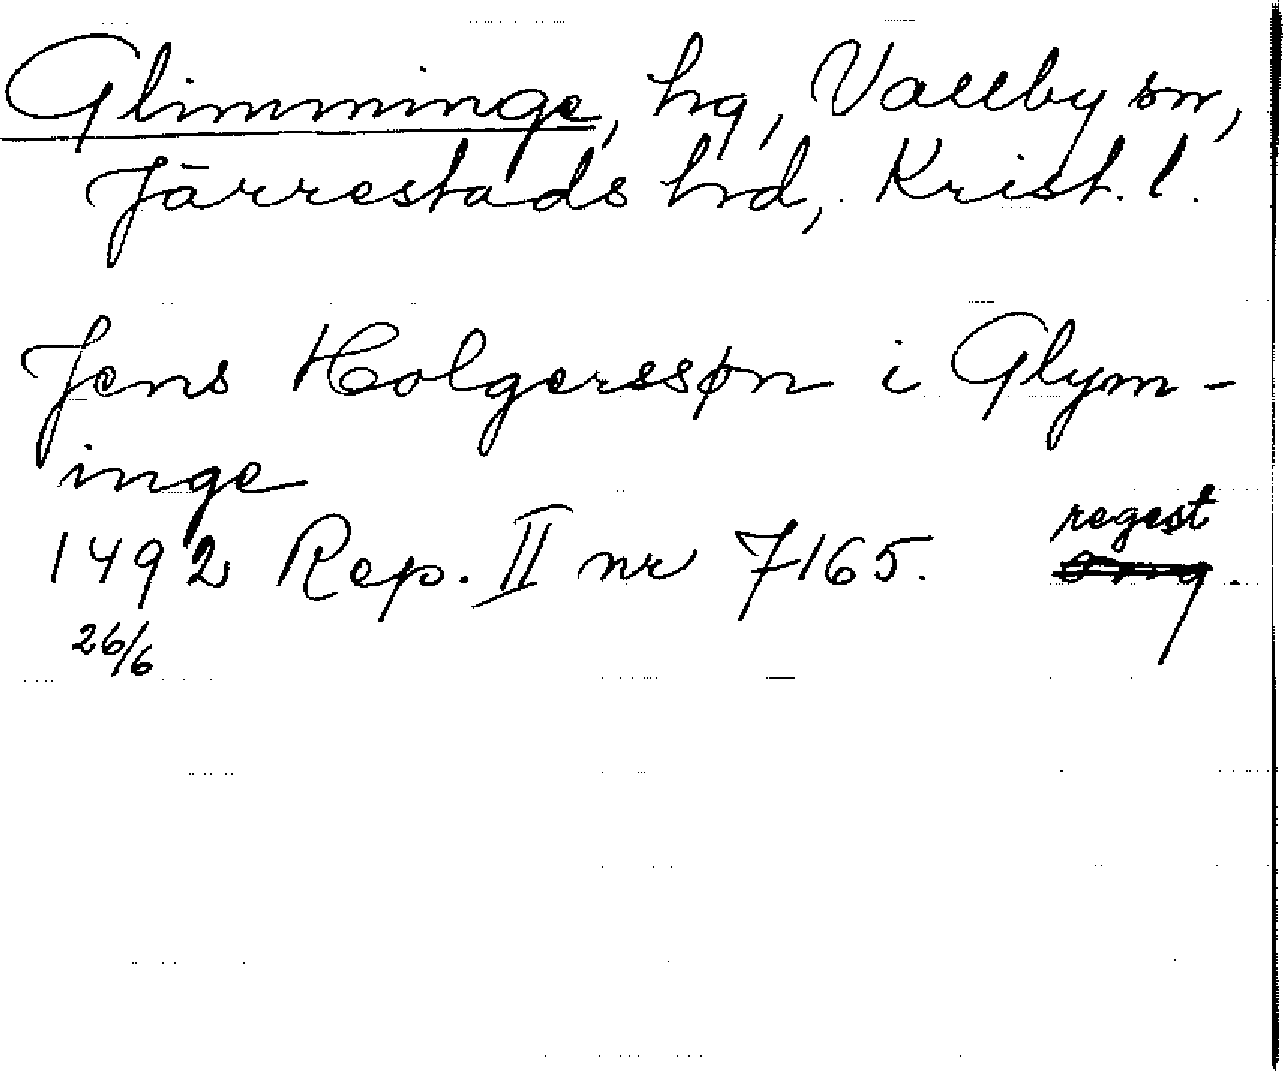 Glimminge, hg, Vallby sn,
Järrestads hrd, Krist. l.
Jens Holgerssøn i Glym-
inge
regest
1492 Rep. II nr 7165.
26/6